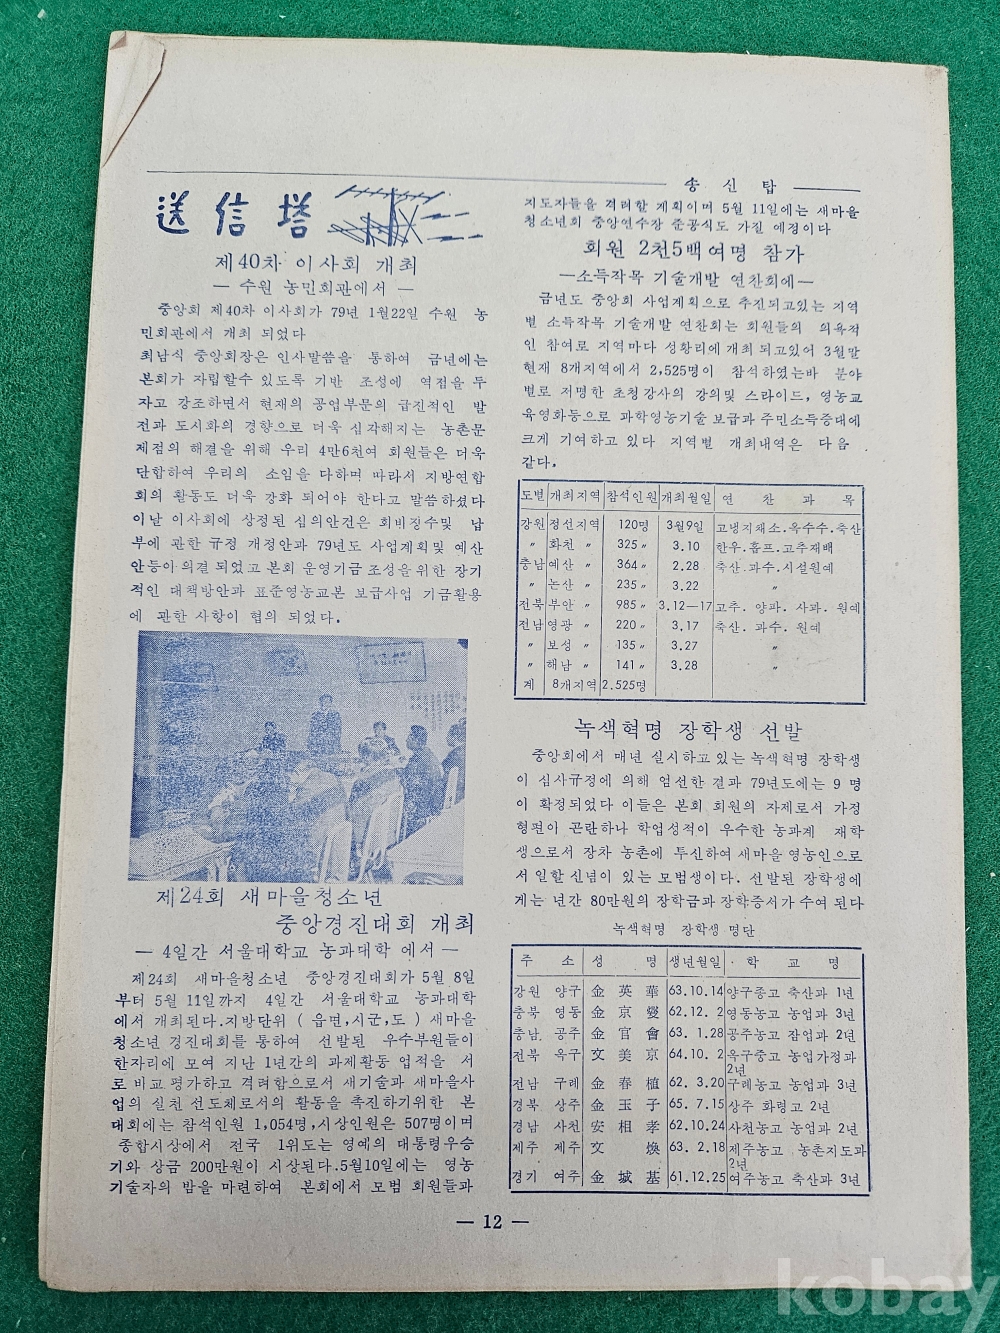 송 신 탑
送 信 塔
제40차 이사회 개최
— 수원 농민회관에서 —
중앙회 제40차 이사회가 79년 1월22일 수원 농
민회관에서 개최 되었다
최남식 중앙회장은 인사말씀을 통하여 금년에는
본회가 자립할수 있도록 기반 조성에 역점을 두
자고 강조하면서 현재의 공업부문의 급진적인 발
전과 도시화의 경향으로 더욱 심각해지는 농촌문
제점의 해결을 위해 우리 4만6천여 회원들은 더욱
단합하여 우리의 소임을 다하며 따라서 지방연합
회의 활동도 더욱 강화 되어야 한다고 말씀하셨다
이날 이사회에 상정된 심의안건은 회비징수및 납
부에 관한 규정 개정안과 79년도 사업계획및 예산
안등이 의결 되었고 본회 운영기금 조성을 위한 장기
적인 대책방안과 표준영농교본 보급사업 기금활용
에 관한 사항이 협의 되었다.
제24회 새마을청소년
중앙경진대회 개최
— 4일간 서울대학교 농과대학 에서 —
제24회 새마을청소년 중앙경진대회가 5월 8일
부터 5월 11일까지 4일간 서울대학교 농과대학
에서 개최된다.지방단위 ( 읍면,시군,도 ) 새마을
청소년 경진대회를 통하여 선발된 우수부원들이
한자리에 모여 지난 1년간의 과제활동 업적을 서
로 비교 평가하고 격려함으로서 새기술과 새마을사
업의 실천 선도체로서의 활동을 촉진하기위한 본
대회에는 참석인원 1,054명,시상인원은 507명이며
종합시상에서 전국 1위도는 영예의 대통령우승
기와 상금 200만원이 시상된다.5월10일에는 영농
기술자의 밤을 마련하여 본회에서 모범 회원들과
지도자들을 격려할 계획이며 5월 11일에는 새마을
청소년회 중앙연수장 준공식도 가질 예정이다
회원 2천5백여명 참가
—소득작목 기술개발 연찬회에—
금년도 중앙회 사업계획으로 추진되고있는 지역
별 소득작목 기술개발 연찬회는 회원들의 의욕적
인 참여로 지역마다 성황리에 개최 되고있어 3월말
현재 8개지역에서 2,525명이 참석하였는바 분야
별로 저명한 초청강사의 강의및 스라이드, 영농교
육영화등으로 과학영농기술 보급과 주민소득증대에
크게 기여하고 있다 지역별 개최내역은 다음
같다.
도별 개최지역 참석인원 개최월일 연 찬 과 목
강원 정선지역 120명 3월9일 고냉지채소.옥수수.축산
〃 화천 〃 325〃 3.10 한우.홉프.고추재배
충남 예산 〃 364〃 2.28 축산.과수.시설원예
〃 논산 〃 235〃 3.22 〃
전북 부안 〃 985〃 3.12—17 고추. 양파. 사과. 원예
전남 영광 〃 220〃 3.17 축산. 과수. 원예
〃 보성 〃 135〃 3.27 〃
〃 해남 〃 141〃 3.28 〃
계 8개지역 2.525명
녹색혁명 장학생 선발
중앙회에서 매년 실시하고 있는 녹색혁명 장학생
이 심사규정에 의해 엄선한 결과 79년도에는 9 명
이 확정되었다 이들은 본회 회원의 자제로서 가정
형편이 곤란하나 학업성적이 우수한 농과계 재학
생으로서 장차 농촌에 투신하여 새마을 영농인으로
서 일할 신념이 있는 모범생이다. 선발된 장학생에
게는 년간 80만원의 장학금과 장학증서가 수여 된다
녹색혁명 장학생 명단
주 소 성 명 생년월일 학 교 명
강원 양구 金 英 華 63.10.14 양구종고 축산과 1년
충북 영동 金 京 燮 62.12. 2 영동농고 농업과 3년
충남 공주 金 官 會 63. 1.28 공주농고 잠업과 2년
전북 옥구 文 美 京 64.10. 2 옥구종고 농업가정과
2년
전남 구례 金 春 植 62. 3.20 구례농고 농업과 3년
경북 상주 金 玉 子 65. 7.15 상주 화령고 2년
경남 사천 安 相 孝 62.10.24 사천농고 농업과 2년
제주 제주 文 煥 63. 2.18 제주농고 농촌지도과
2년
경기 여주 金 城 基 61.12.25 여주농고 축산과 3년
— 12 —
kobay